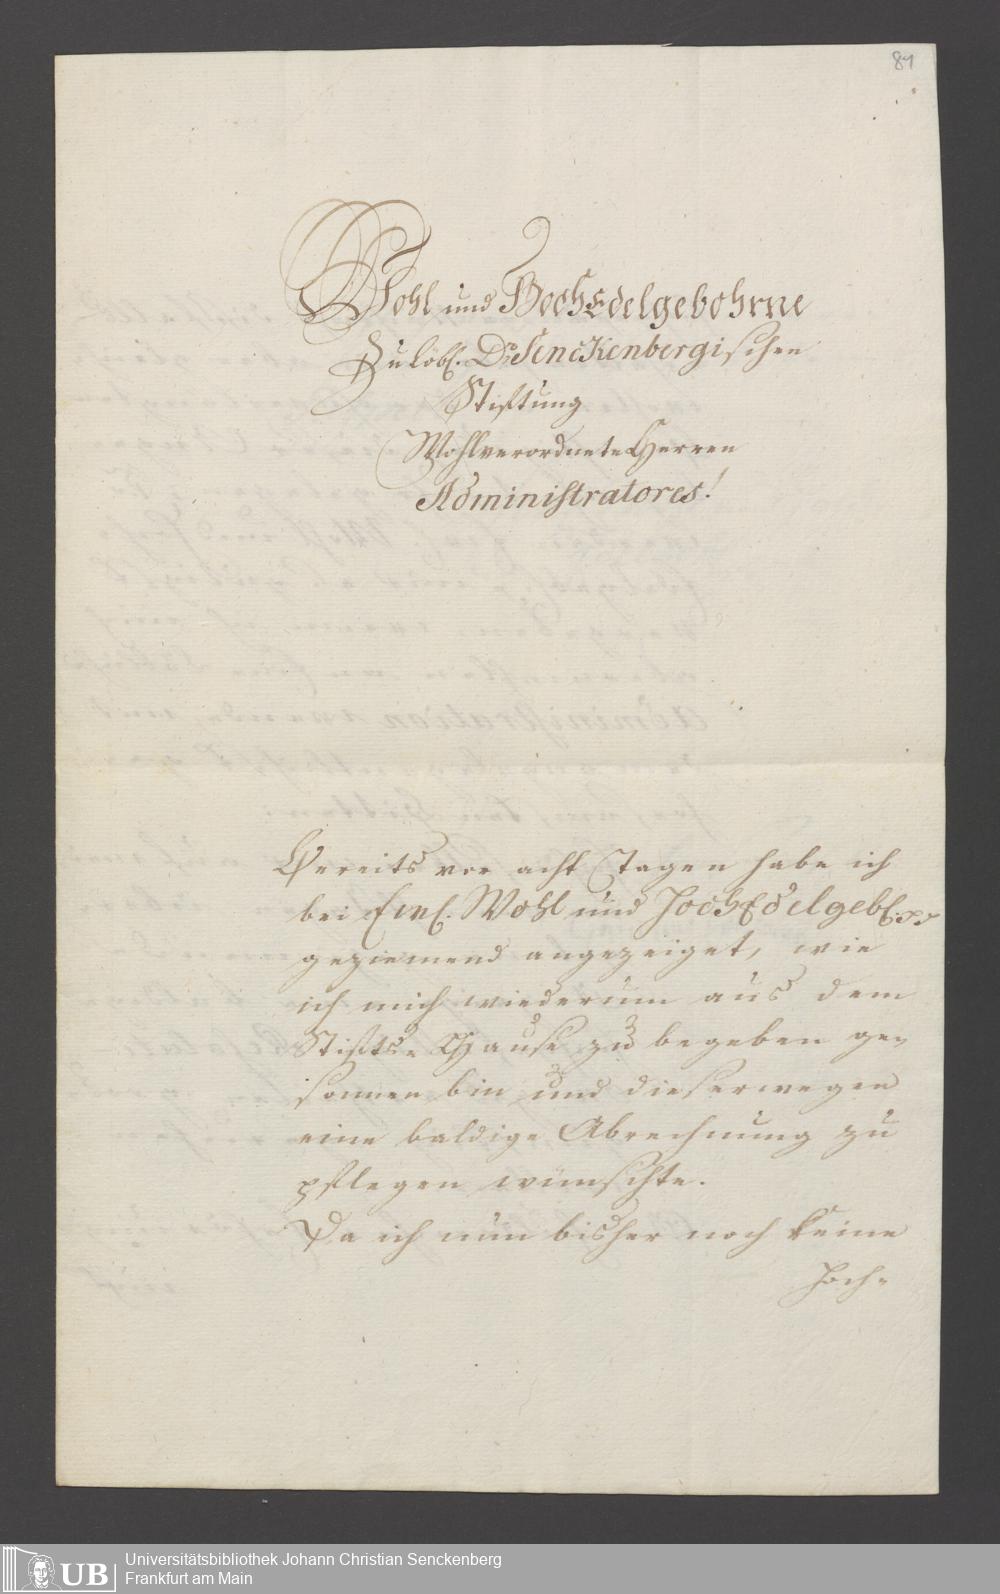 81
Wohl und HochEdelgebohrne
Zu Löbl. Dr. Senckenbergischen
Stiftung
Wohlverordnete Herren
Administratores!
Bereits vor acht Tagen habe ich
bei Ewl. Wohl und HochEdelgebl.
geziemend angezeiget, wie
ich mich wiederum aus dem
Stifts- Hause zu begeben ge-
sonnen bin und dieserwegen
eine baldige Abrechnung zu
pflegen wünschte.
Da ich nun bisher noch keine
Hoch-
UB Universitätsbibliothek Johann Christian Senckenberg
Frankfurt am Main